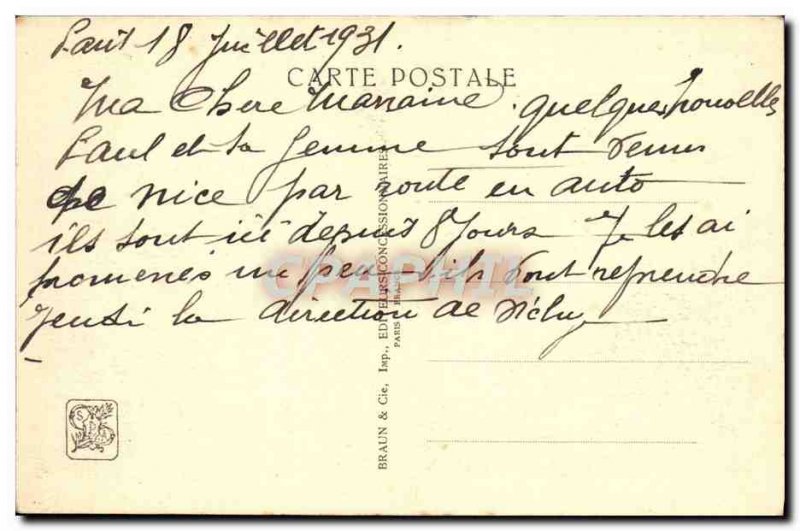 Paris 18 Juillet 1931.
CARTE POSTALE
Ma Chere Marraine. quelques nouvelles
Paul et sa femme sont venus
de nice par route en auto
ils sont ici depuis 8 Jours Je les ai
promenés un peu - ils vont reprendre
Jeudi la direction de Vichy
BRAUN & Cie, Imp., EDITEURS-CONCESSIONNAIRES
PARIS
CPAPHIL